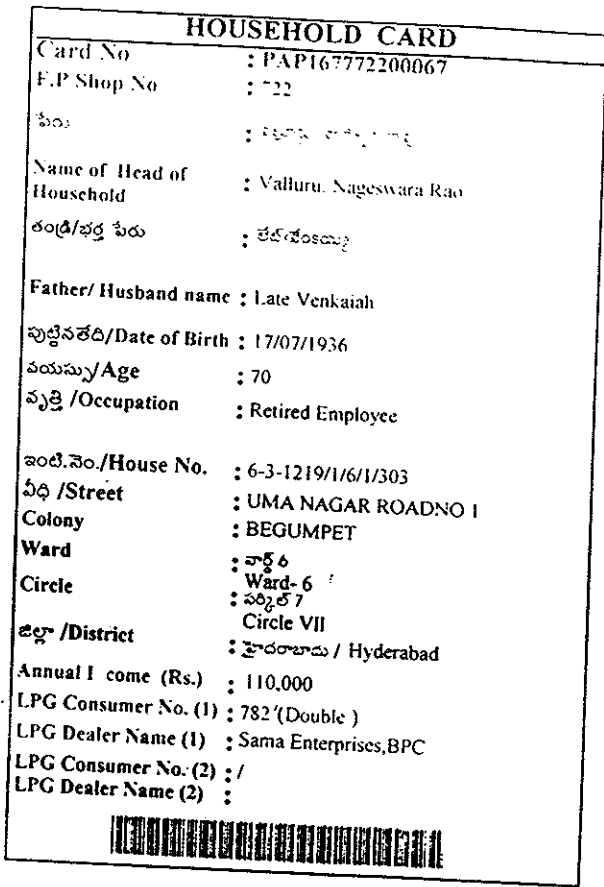 HOUSEHOLD CARD
Card No : PAP167772200067
F.P Shop No : 22
పేరు :
Name of Head of Household : Valluru, Nageswara Rao
తండ్రి/భర్త పేరు : లేట్ వెంకయ్య
Father/ Husband name : Late Venkaiah
పుట్టినతేది/Date of Birth : 17/07/1936
వయస్సు/Age : 70
వృత్తి /Occupation : Retired Employee
ఇంటి.నెం./House No. : 6-3-1219/1/6/1/303
వీధి /Street : UMA NAGAR ROADNO 1
Colony : BEGUMPET
Ward : వార్డ్ 6
Ward- 6
Circle : సర్కిల్ 7
Circle VII
జిల్లా /District : హైదరాబాదు / Hyderabad
Annual I come (Rs.) : 110,000
LPG Consumer No. (1) : 782 (Double )
LPG Dealer Name (1) : Sama Enterprises,BPC
LPG Consumer No. (2) : /
LPG Dealer Name (2) :